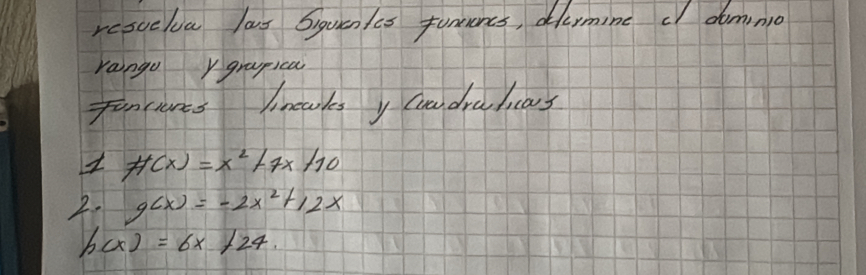 resuelva las siguientes funciones, determine el dominio
rango y grafica
Funciones lineales y cuadraticas
1 f(x) = x² + 7x + 10
2. g(x) = -2x² + 12x
h(x) = 6x + 24.